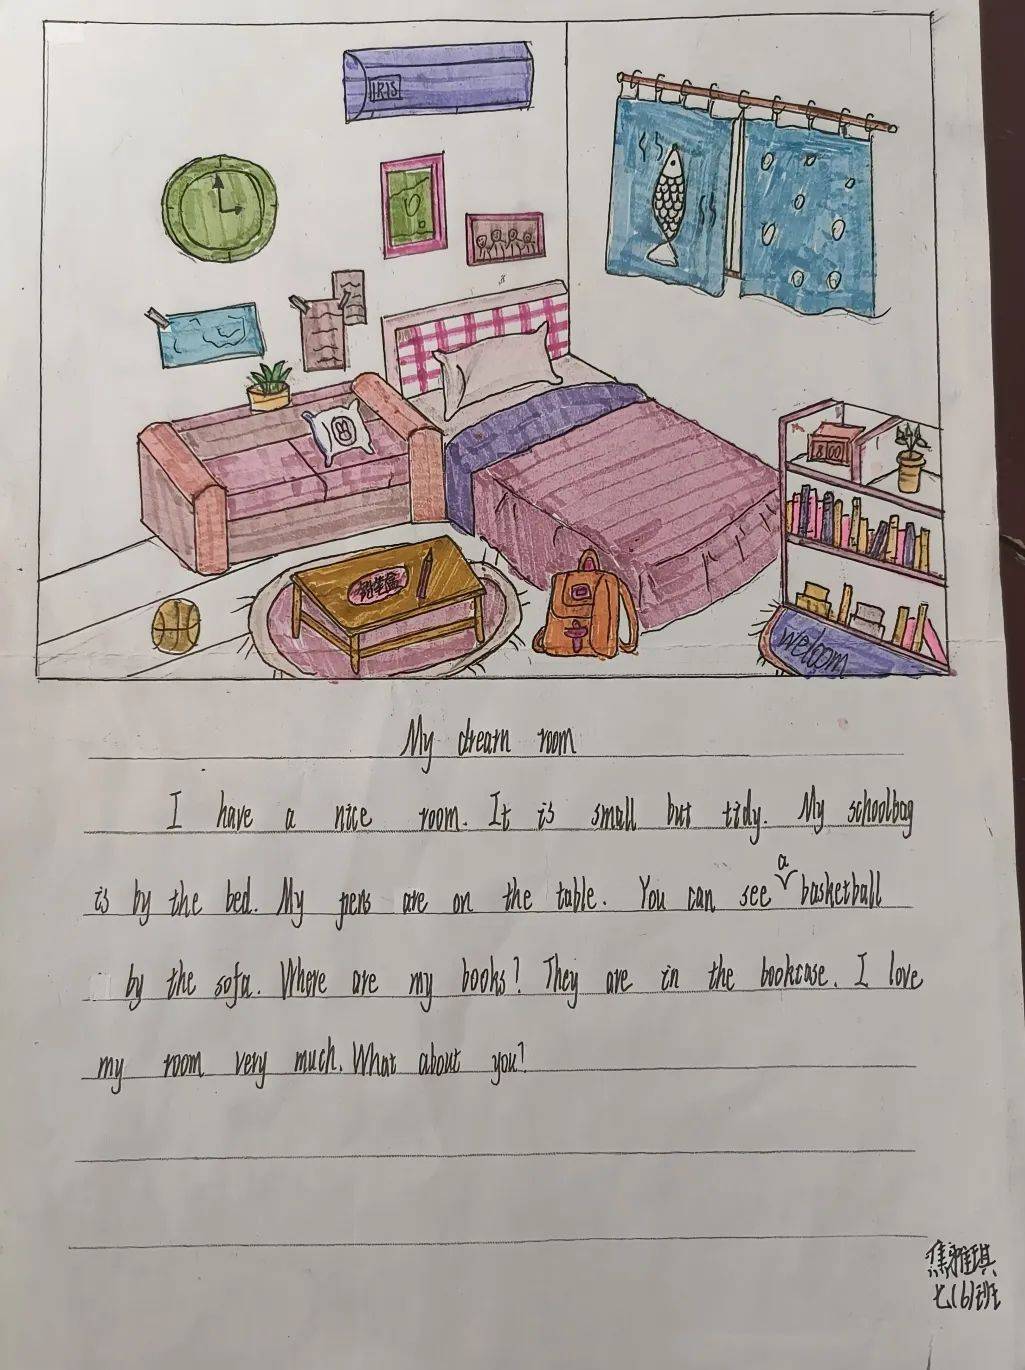 IRIS
8:00
welcom
My dream room
I have a nice room. It is small but tidy. My schoolbag
is by the bed. My pens are on the table. You can see a basketball
by the sofa. Where are my books? They are in the bookcase. I love
my room very much. What about you?
焦雅琪
七(6)班